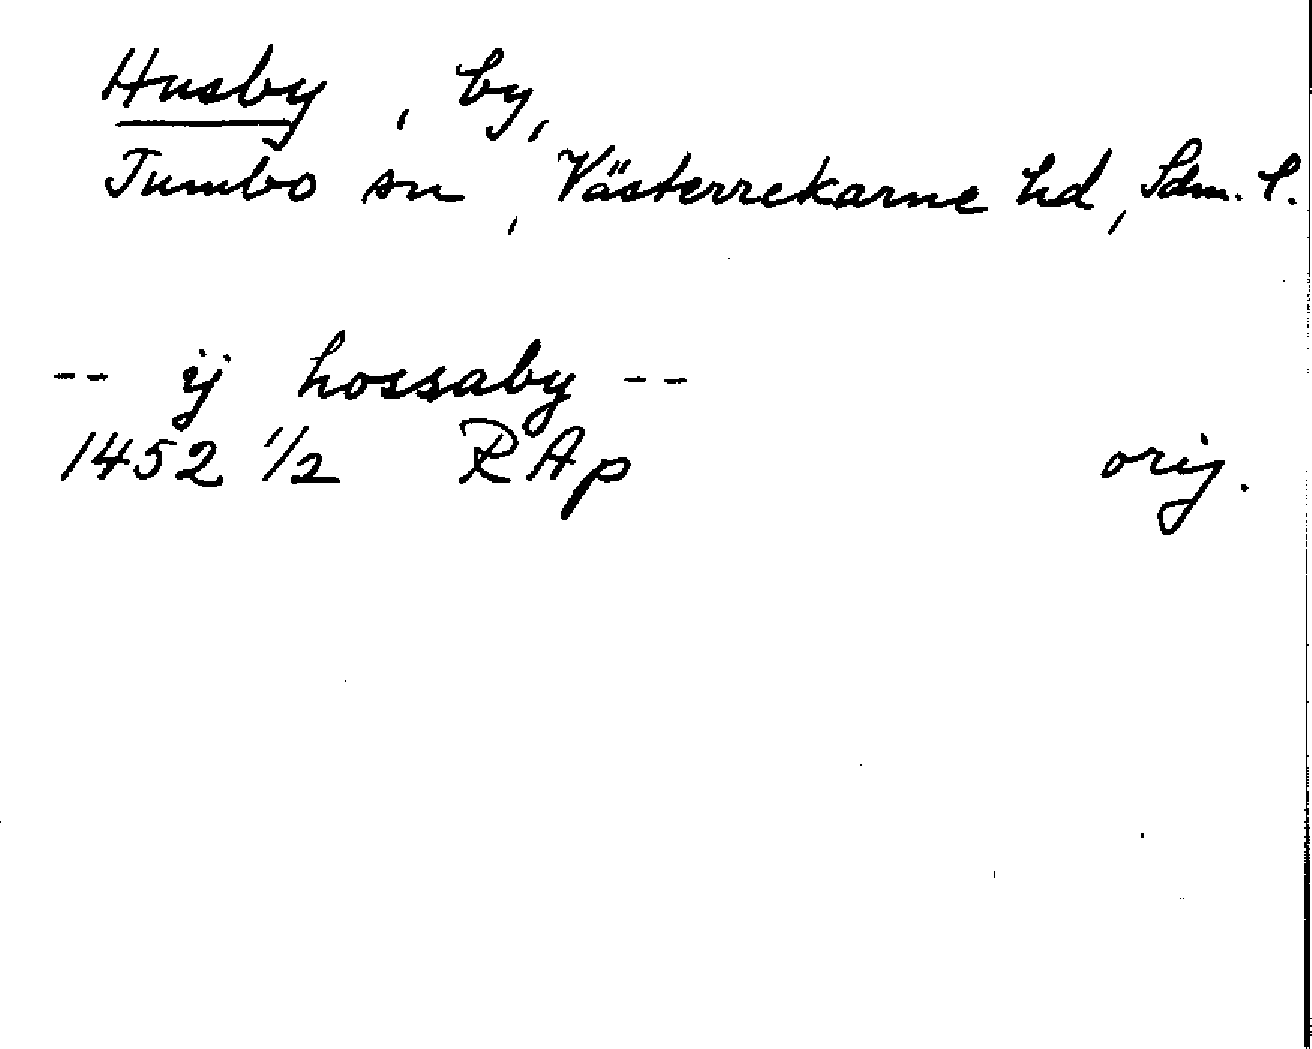 Husby, by,
Tumbo sn, Västerrekarne hd, Sdm. l.
-- ij hossaby --
1452 1/2 RAp orig.